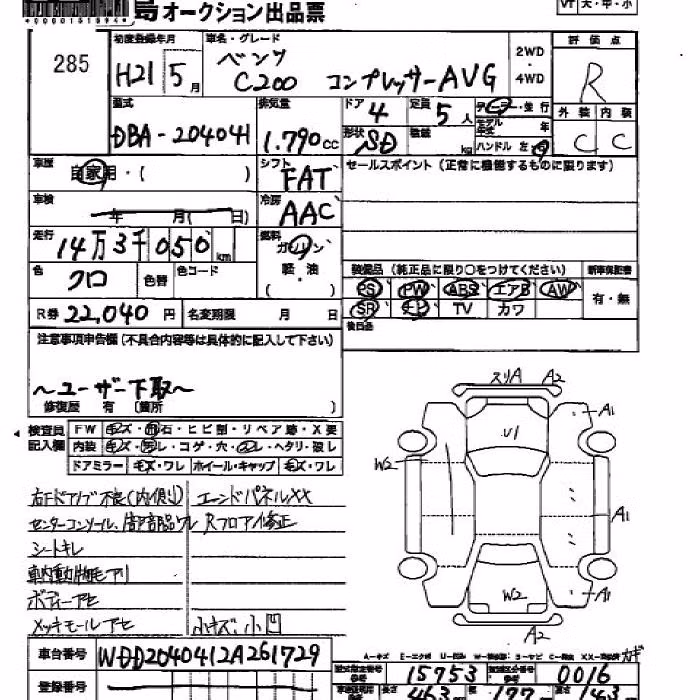 オークション出品票
VT 大・中・小
285
初度登録年月 H21 5月
車名・グレード ベンツ
C200 コンプレッサーAVG
2WD・4WD
評価点 R
型式 DBA-204041
排気量 1.790cc
ドア 4 定員 5人
形状 SD 積載 kg
モデル年式 年
ハンドル 左・右
外装 内装
C C
車歴 自家用・( )
シフト FAT
セールスポイント(正常に機能するものに限ります)
車検 年 月( 日)
冷房 AAC
走行 14万3千050km
燃料 ガソリン
軽・油
( )
色 クロ 色替 色コード
装備品(純正品に限り○をつけてください) 新車保証書
PS PW ABS エアB AW 有・無
SR ナビ TV カワ
R券 22,040円 名変期限 月 日
後日品
注意事項申告欄(不具合内容等は具体的に記入して下さい)
〜ユーザー下取〜
修復歴 有 (箇所 )
検査員記入欄 FW キズ・飛石・ヒビ割・リペア跡・X要
内装 キズ・汚レ・コゲ・穴・スレ・ヘタリ・破レ
ドアミラー キズ・ワレ ホイール・キャップ キズ・ワレ
右Fドアノブ不良(内側) エンドパネルXX
センターコンソール、内部部品ワレ Rフロア修正
シートキレ
車内動物毛アリ
ボディーアセ
メッキモールアセ 小キズ、小凹
スリA A2
A1
U1
W2
A1
W2
A1
A2
車台番号 WDD2040412A261729
登録番号
型式指定番号 15753 類別区分番号 0016
長さ 463 cm 幅 177 高さ 143